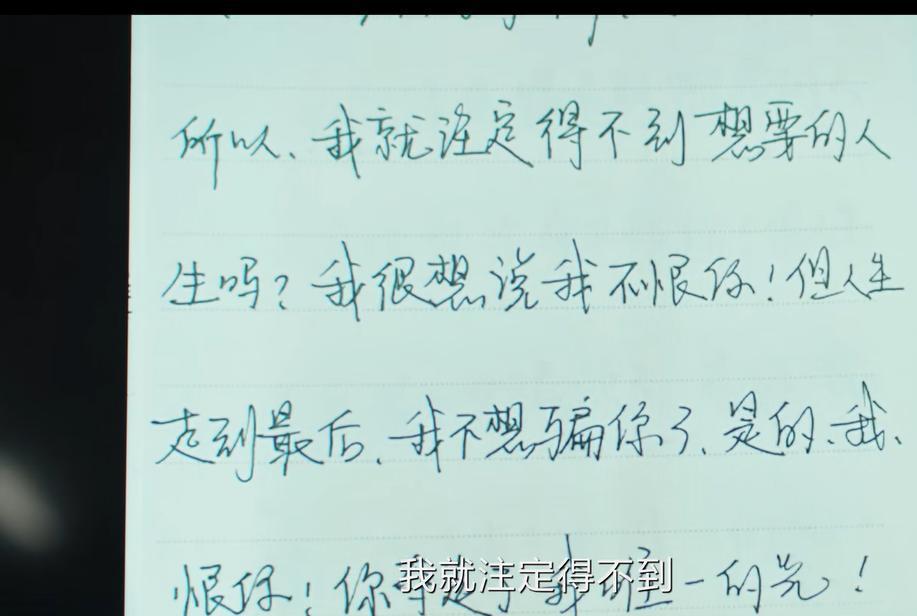 所以、我就注定得不到想要的人
生吗?我很想说我不恨你!但人生
走到最后、我不想骗你了、是的、我、
恨你!你夺走了我唯一的光!
我就注定得不到